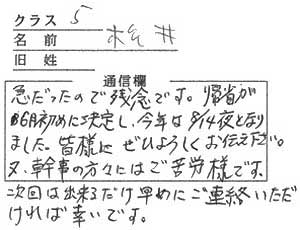 クラス 5
名前 松井
旧姓
通信欄
急だったので残念です。帰省が
6月初めに決定し、今年は8/14夜となり
ました。皆様に ぜひよろしくお伝え下さい。
又、幹事の方々にはご苦労様です。
次回は出来るだけ早めにご連絡いただ
ければ幸いです。